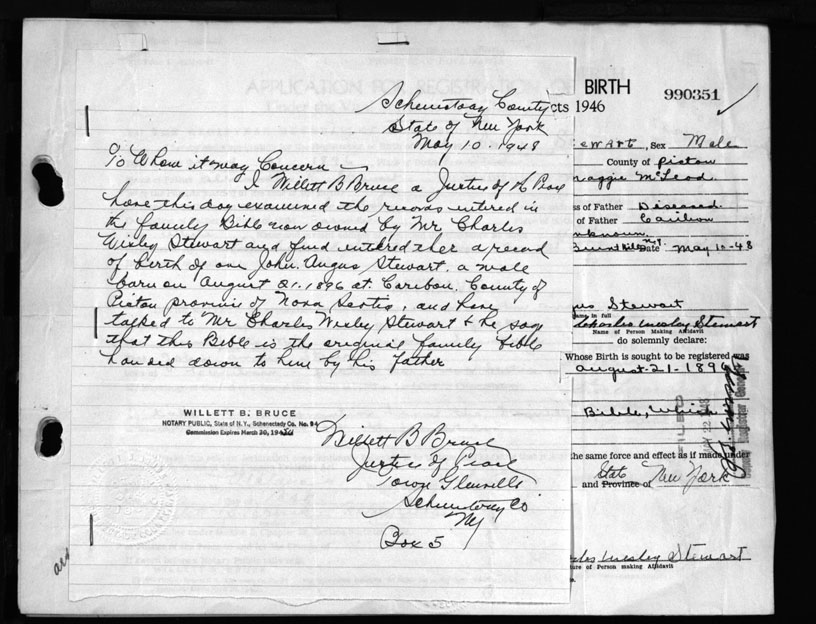 Schenectady County
State of New York
May 10 - 1948
To Whom it may Concern -
I Willett B Bruce a Justice of the Peace
have this day examined the records entered in
the family Bible now owned by Mr Charles
Wesley Stewart and find entered ther a record
of berth of one John. Angus Stewart. a male
born on August 21. 1896 at. Caribou. County of
Pictou provinc of Nova Scotia, and have
talked to Mr Charles Wesley Stewart & he says
that this Bible is the original family bible
handed down to him by his Father
WILLETT B. BRUCE
NOTARY PUBLIC, State of N.Y., Schenectady Co. No. 94
Commission Expires March 30, 19
Willett B Bruce
Justice of Peace
Town Glenville
Schenectady Co
NY
Box 5
APPLICATION FOR REGISTRATION OF BIRTH
990351
cts 1946
ewart, Sex Male
County of Pictou
Maggie McLeod
ss of Father Diseased
of Father Caribou
nknown
Date May 10-48
gus Stewart
ame in full
Charles Wesley Stewart
Name of Person Making Affidavit
do solemnly declare:
Whose Birth is sought to be registered was
August-21-1896
Bible, which
FILED
the same force and effect as if made under
and Province of State New York
rles Wesley Stewart
ture of Person making Affidavit